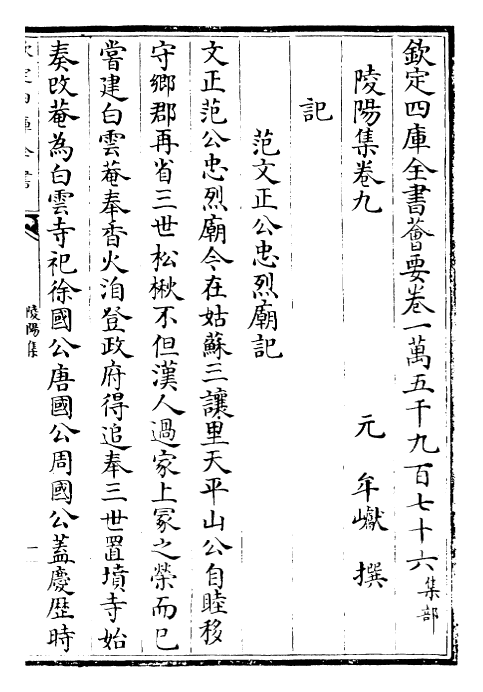 欽定四庫全書薈要卷一萬五千九百七十六集部
陵陽集卷九
元 牟巘 撰
記
范文正公忠烈廟記
文正范公忠烈廟今在姑蘇三讓里天平山公自睦移
守鄉郡再省三世松楸不但漢人過家上冢之榮而已
嘗建白雲菴奉香火洎登政府得追奉三世置墳寺始
奏改菴為白雲寺祀徐國公唐國公周國公蓋慶歷時
欽定四庫全書
陵陽集
一